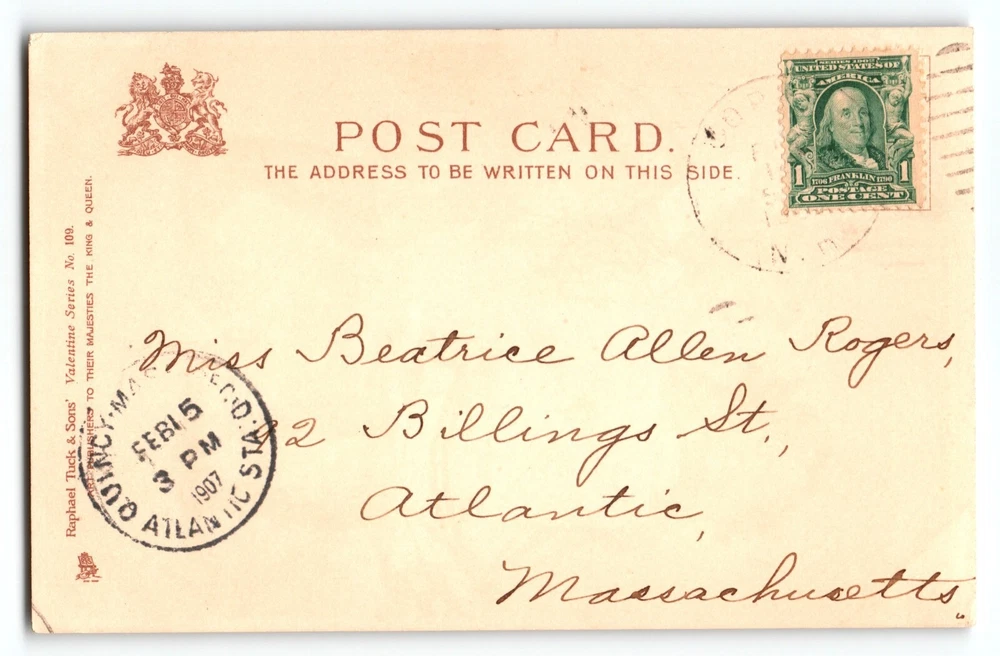 POST CARD.
THE ADDRESS TO BE WRITTEN ON THIS SIDE.
SERIES 1902
UNITED STATES OF
AMERICA
1790 FRANKLIN 1790
1 1
POSTAGE
ONE CENT
Raphael Tuck & Sons' Valentine Series No. 109.
ART PUBLISHERS TO THEIR MAJESTIES THE KING & QUEEN.
Miss Beatrice Allen Rogers,
2 Billings St.,
Atlantic,
Massachusetts.
QUINCY. REC'D.
ATLANTIC STA.
FEB 15
3 PM
1907